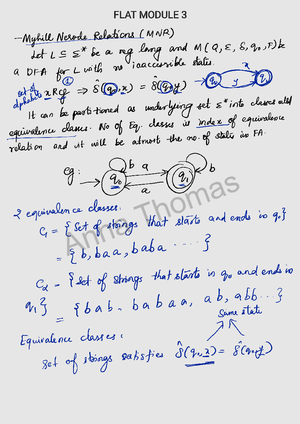 FLAT MODULE 3
Myhill Nerode Relations (MNR)
Let L ⊆ Σ* be a reg lang and M(Q, Σ, δ, q₀, F) be
a DFA for L with no inaccessible states.
set of alphabets x R y ⇒ δ̂(q₀,x) = δ̂(q₀,y) x y
It can be partitioned as underlying set Σ* into classes
equivalence classes. No of Eq. classes is index of equivalence
relation and it will be atmost the no of states in FA.
eg: q₀ q₁ b a a b
2 equivalence classes.
C₁ = {set of strings that starts and ends in q₀}
= {b, baa, baba ....}
C₂ = {set of strings that starts in q₀ and ends in
q₁} = {bab, babaa, ab, abb...}
Same state
Equivalence classes:
set of strings satisfies δ̂(q₀,x) = δ̂(q₀,y)
Anna Thomas